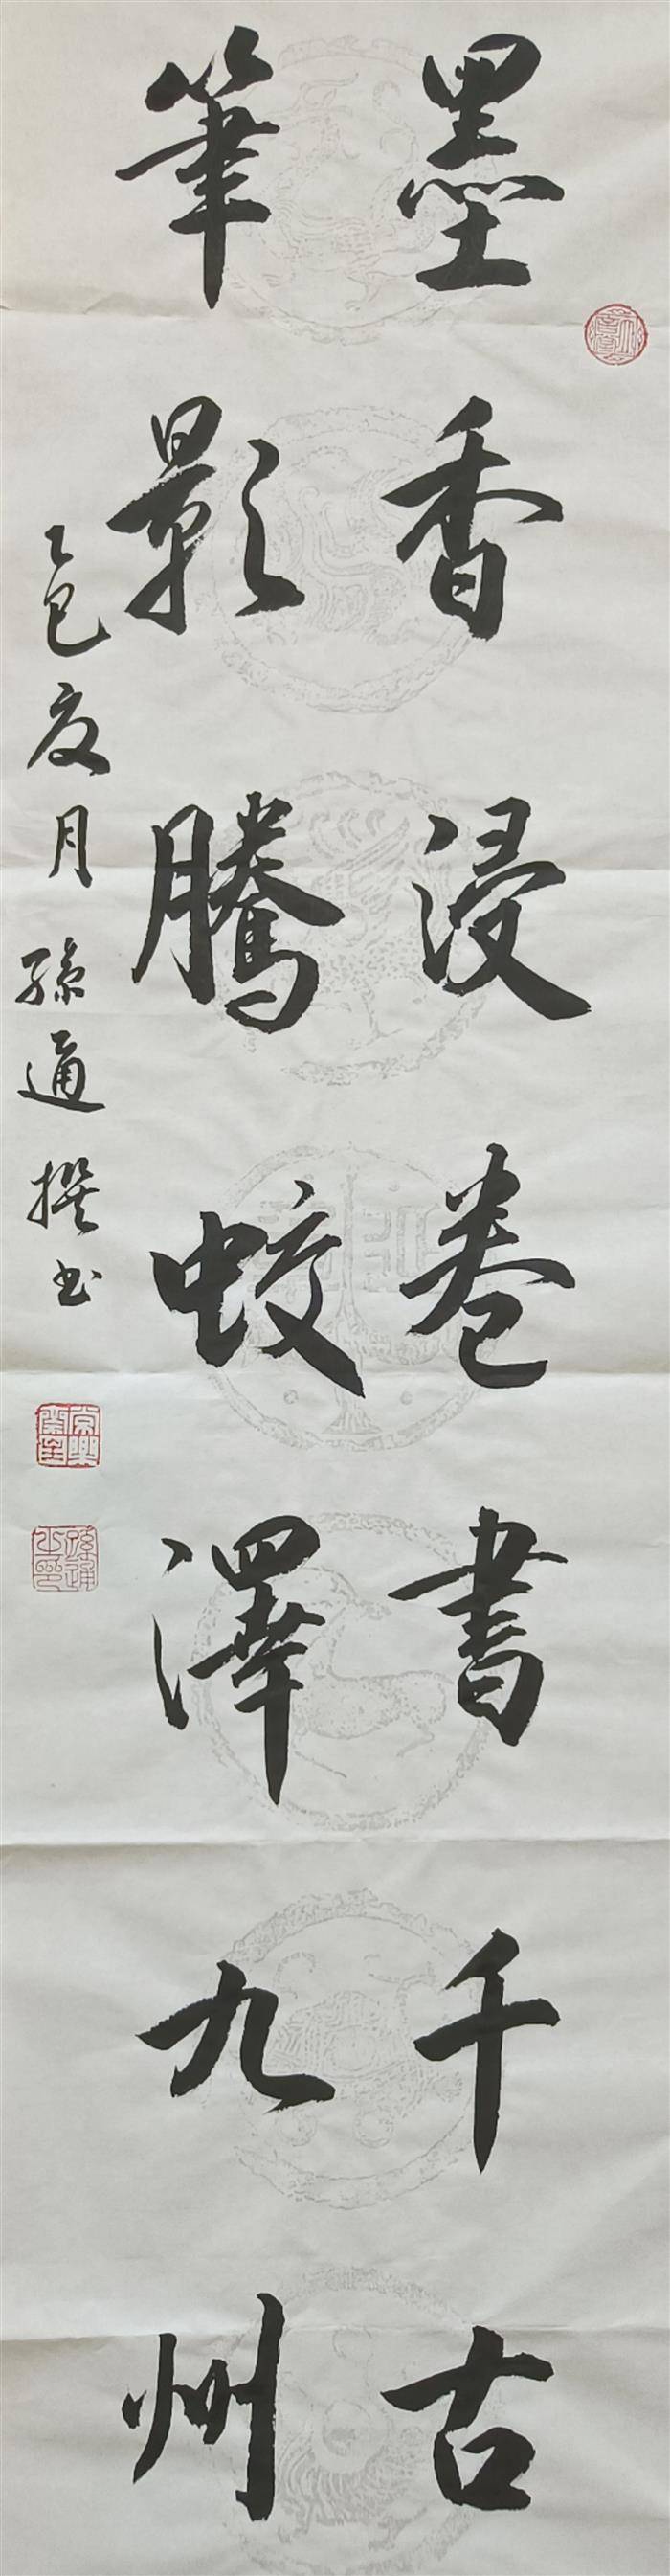 墨香浸卷書千古
筆影騰蛟澤九州
乙巳夏月孫通撰书